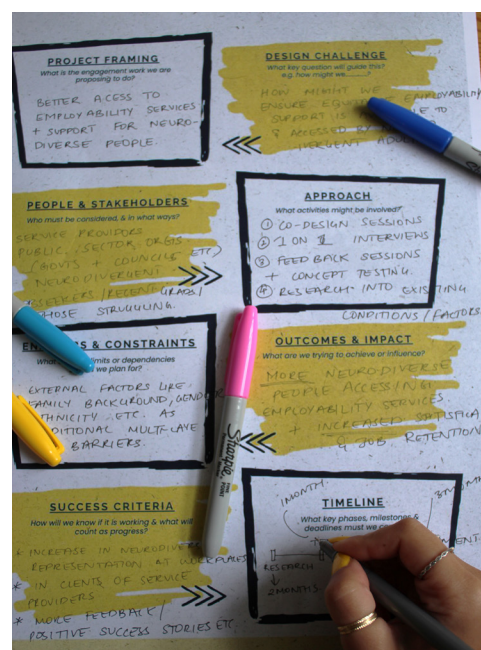 PROJECT FRAMING
What is the engagement work we are
proposing to do?
BETTER ACESS TO
EMPLOYABILITY SERVICES
+ SUPPORT FOR NEURO-
DIVERSE PEOPLE.
DESIGN CHALLENGE
What key question will guide this?
e.g. how might we_____?
HOW MIGHT WE
ENSURE EMPLOYABILITY
SUPPORT IS TO
& ACCESSED BY
PEOPLE & STAKEHOLDERS
Who must be considered, & in what ways?
SERVICE PROVIDORS
PUBLIC SECTOR ORGS.
(GOVTS + COUNCILS ETC)
NEURODIVERGENT
THOSE STRUGGLING.
APPROACH
What activities might be involved?
① CO-DESIGN SESSIONS
② 1 ON 1 INTERVIEWS
③ FEEDBACK SESSIONS
+ CONCEPT TESTING.
④ RESEARCH INTO EXISTING
CONDITIONS/FACTORS
& CONSTRAINTS
limits or dependencies
we plan for?
EXTERNAL FACTORS LIKE
FAMILY BACKGROUND, GENDER
ETHNICITY ETC. AS
BARRIERS.
OUTCOMES & IMPACT
What are we trying to achieve or influence?
MORE NEURO-DIVERSE
PEOPLE ACCESSING
EMPLOYABILITY SERVICES
+ INCREASED
& JOB RETENTION
Sharpie
SUCCESS CRITERIA
How will we know if it is working & what will
count as progress?
* INCREASE IN NEURODIVERSE
REPRESENTATION AT WORKPLACES
* IN CLIENTS OF SERVICE
PROVIDERS
* MORE FEEDBACK/
POSITIVE SUCCESS STORIES ETC.
TIMELINE
What key phases, milestones &
deadlines must we
1 MONTH
RESEARCH
2 MONTHS